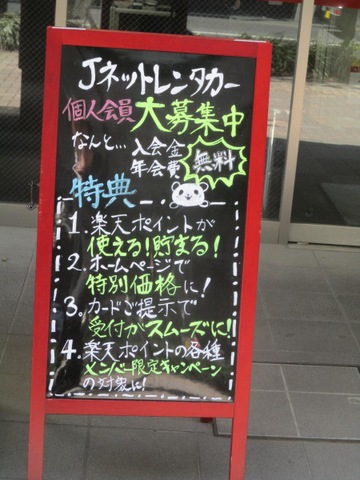 Jネットレンタカー
個人会員大募集中
なんと… 入会金
年会費 無料
特典
1.楽天ポイントが
使える!貯まる!
2.ホームページで
特別価格に!
3.カードご提示で
受付がスムーズに!
4.楽天ポイントの各種
メンバー限定キャンペーン
の対象に!